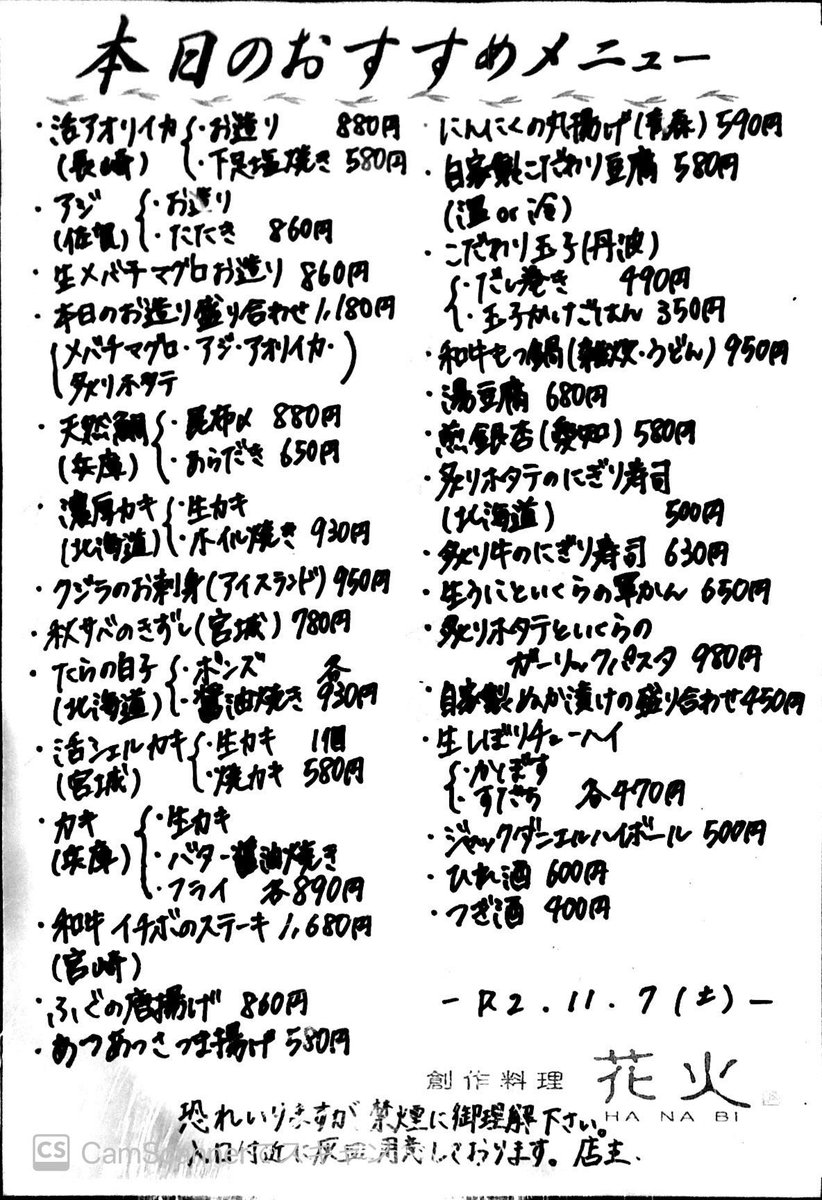 本日のおすすめメニュー
・活アオリイカ ・お造り 880円
(長崎) ・下足塩焼き 580円
・アジ ・お造り
(佐賀) ・たたき 860円
・生メバチマグロお造り 860円
・本日のお造り盛り合わせ 1,180円
(メバチマグロ・アジ・アオリイカ・
炙りホタテ)
・天然鯛 ・昆布〆 880円
(兵庫) ・あらだき 650円
・濃厚カキ ・生カキ
(北海道) ・ホイル焼き 930円
・クジラのお刺身(アイスランド) 950円
・秋サバのきずし(宮城) 780円
・たらの白子 ・ポンズ 各
(北海道) ・醤油焼き 930円
・活シェルカキ ・生カキ 1個
(宮城) ・焼カキ 580円
・カキ ・生カキ
(兵庫) ・バター醤油焼き
・フライ 各890円
・和牛イチボのステーキ 1,680円
(宮崎)
・ふぐの唐揚げ 860円
・あつあつさつま揚げ 580円
・にんにくの丸揚げ(青森) 590円
・自家製こだわり豆腐 580円
(温or冷)
・こだわり玉子(丹波)
・だし巻き 490円
・玉子かけごはん 350円
・和牛もつ鍋(雑炊・うどん) 950円
・湯豆腐 680円
・煎銀杏(愛知) 580円
・炙りホタテのにぎり寿司
(北海道) 500円
・炙り牛のにぎり寿司 630円
・生うにといくらの軍かん 650円
・炙りホタテといくらの
ガーリックパスタ 980円
・自家製ぬか漬けの盛り合わせ 450円
・生しぼりチューハイ
・かぼす
・すだち 各470円
・ジャックダニエルハイボール 500円
・ひれ酒 600円
・つぎ酒 400円
- R2.11.7(土) -
創作料理 花火
HANABI
恐れいりますが禁煙に御理解下さい。
入口付近に灰皿用意しております。店主.
CS CamScannerでスキャン